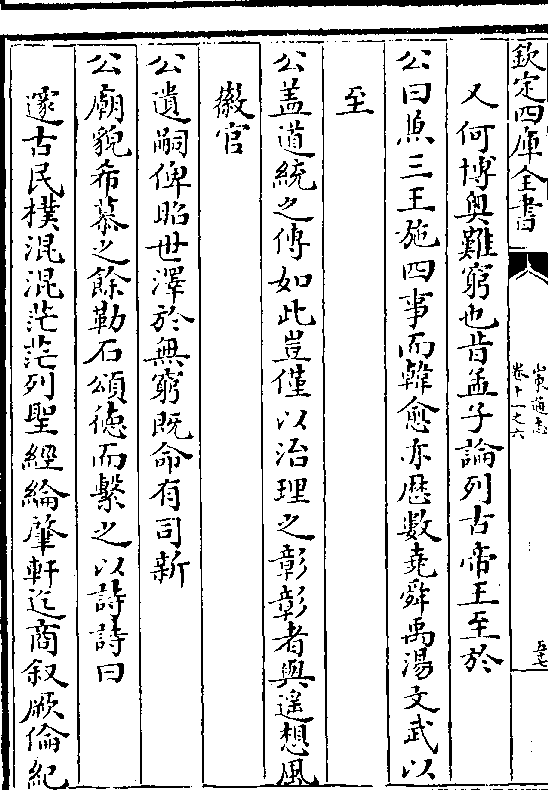 欽定四庫全書
山東通志
卷十一之六
五十七
又何博奧難窮也昔孟子論列古帝王至於
公曰兼三王施四事而韓愈亦歴數堯舜禹湯文武以
至
公蓋道統之傳如此豈僅以治理之彰彰者與遥想風
徽官
公遺嗣俾昭世澤於無窮既命有司新
公廟貌希慕之餘勒石頌徳而繫之以詩詩曰
邃古民樸混混茫茫列聖經綸肇軒迄商叙厥倫紀